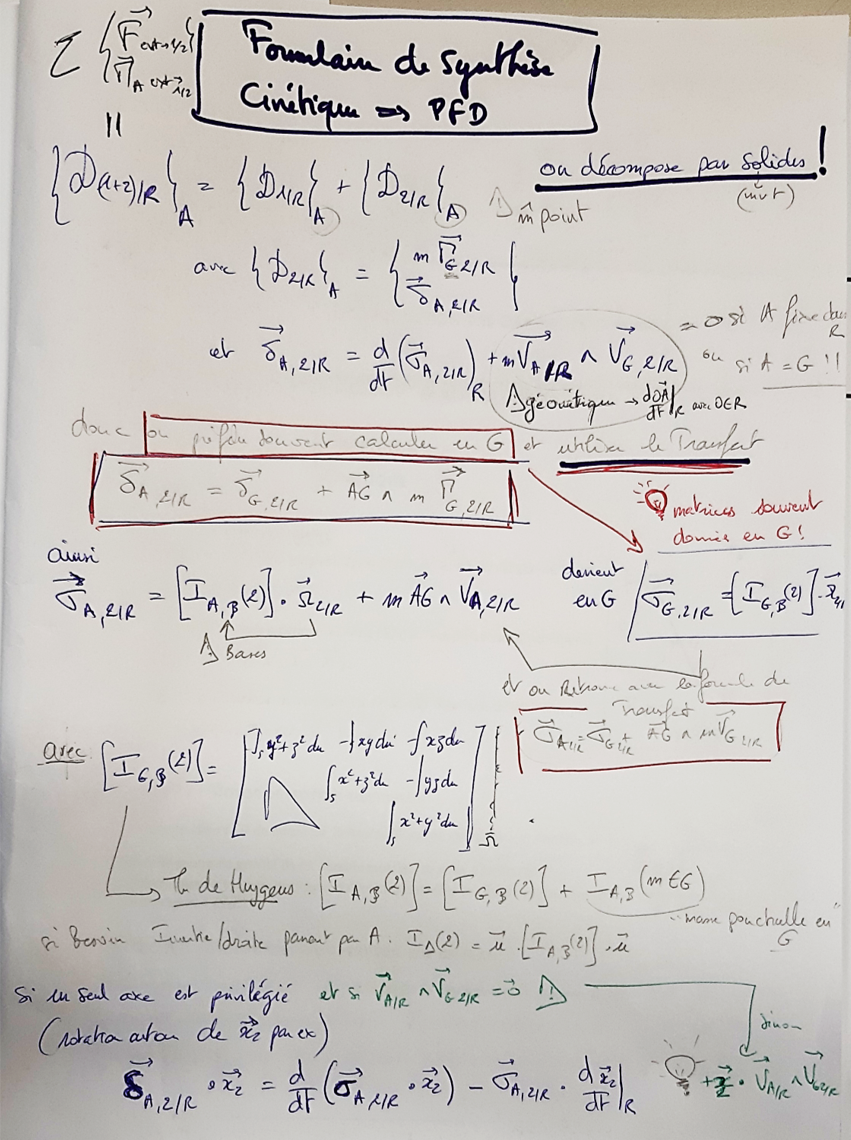 Σ { F⃗ ext→1/2
M⃗ A ext→1/2 }
Formulaire de Synthèse
Cinétique ⇒ PFD
||
{D(1+2)/R}A = {D1/R}A + {D2/R}A ⚠ m̂ point
on décompose par solides !
(mvt)
avec {D2/R}A = { m Γ⃗G,2/R
δ⃗A,2/R }
et δ⃗A,2/R = d/dt (σ⃗A,2/R)R + m V⃗A/R ∧ V⃗G,2/R = 0 si A fixe dans R
ou si A = G !!
⚠ géométrique → dOA⃗/dt |R avec O∈R
donc on préfère souvent calculer en G et utiliser le Transfert
δ⃗A,2/R = δ⃗G,2/R + AG⃗ ∧ m Γ⃗G,2/R
matrices souvent
donnée en G !
ainsi
σ⃗A,2/R = [IA,B(2)] . Ω⃗2/R + m AG⃗ ∧ V⃗A,2/R
devient
en G σ⃗G,2/R = [IG,B(2)] . Ω⃗2/
⚠ Bases
et on Retrouve avec la formule de
Transfert
σ⃗A2/R = σ⃗G2/R + AG⃗ ∧ m V⃗G2/R
avec [IG,B(2)] = [ ∫s y²+z² dm -∫xy dm -∫xz dm
∫s x²+z² dm -∫yz dm
∫s x²+y² dm ] B
Th de Huygens : [IA,B(2)] = [IG,B(2)] + IA,B(m∈G)
"masse ponctuelle en G"
si Besoin Inertie/droite passant par A. IΔ(2) = u⃗ . [IA,B(2)] . u⃗
Si un seul axe est privilégié et si V⃗A/R ∧ V⃗G2/R = 0⃗ ⚠
(rotation autour de x⃗2 par ex)
sinon
δ⃗A,2/R . x⃗2 = d/dt (σ⃗A,2/R . x⃗2) - σ⃗A,2/R . dx⃗2/dt |R
. V⃗A/R ∧ V⃗G2/R